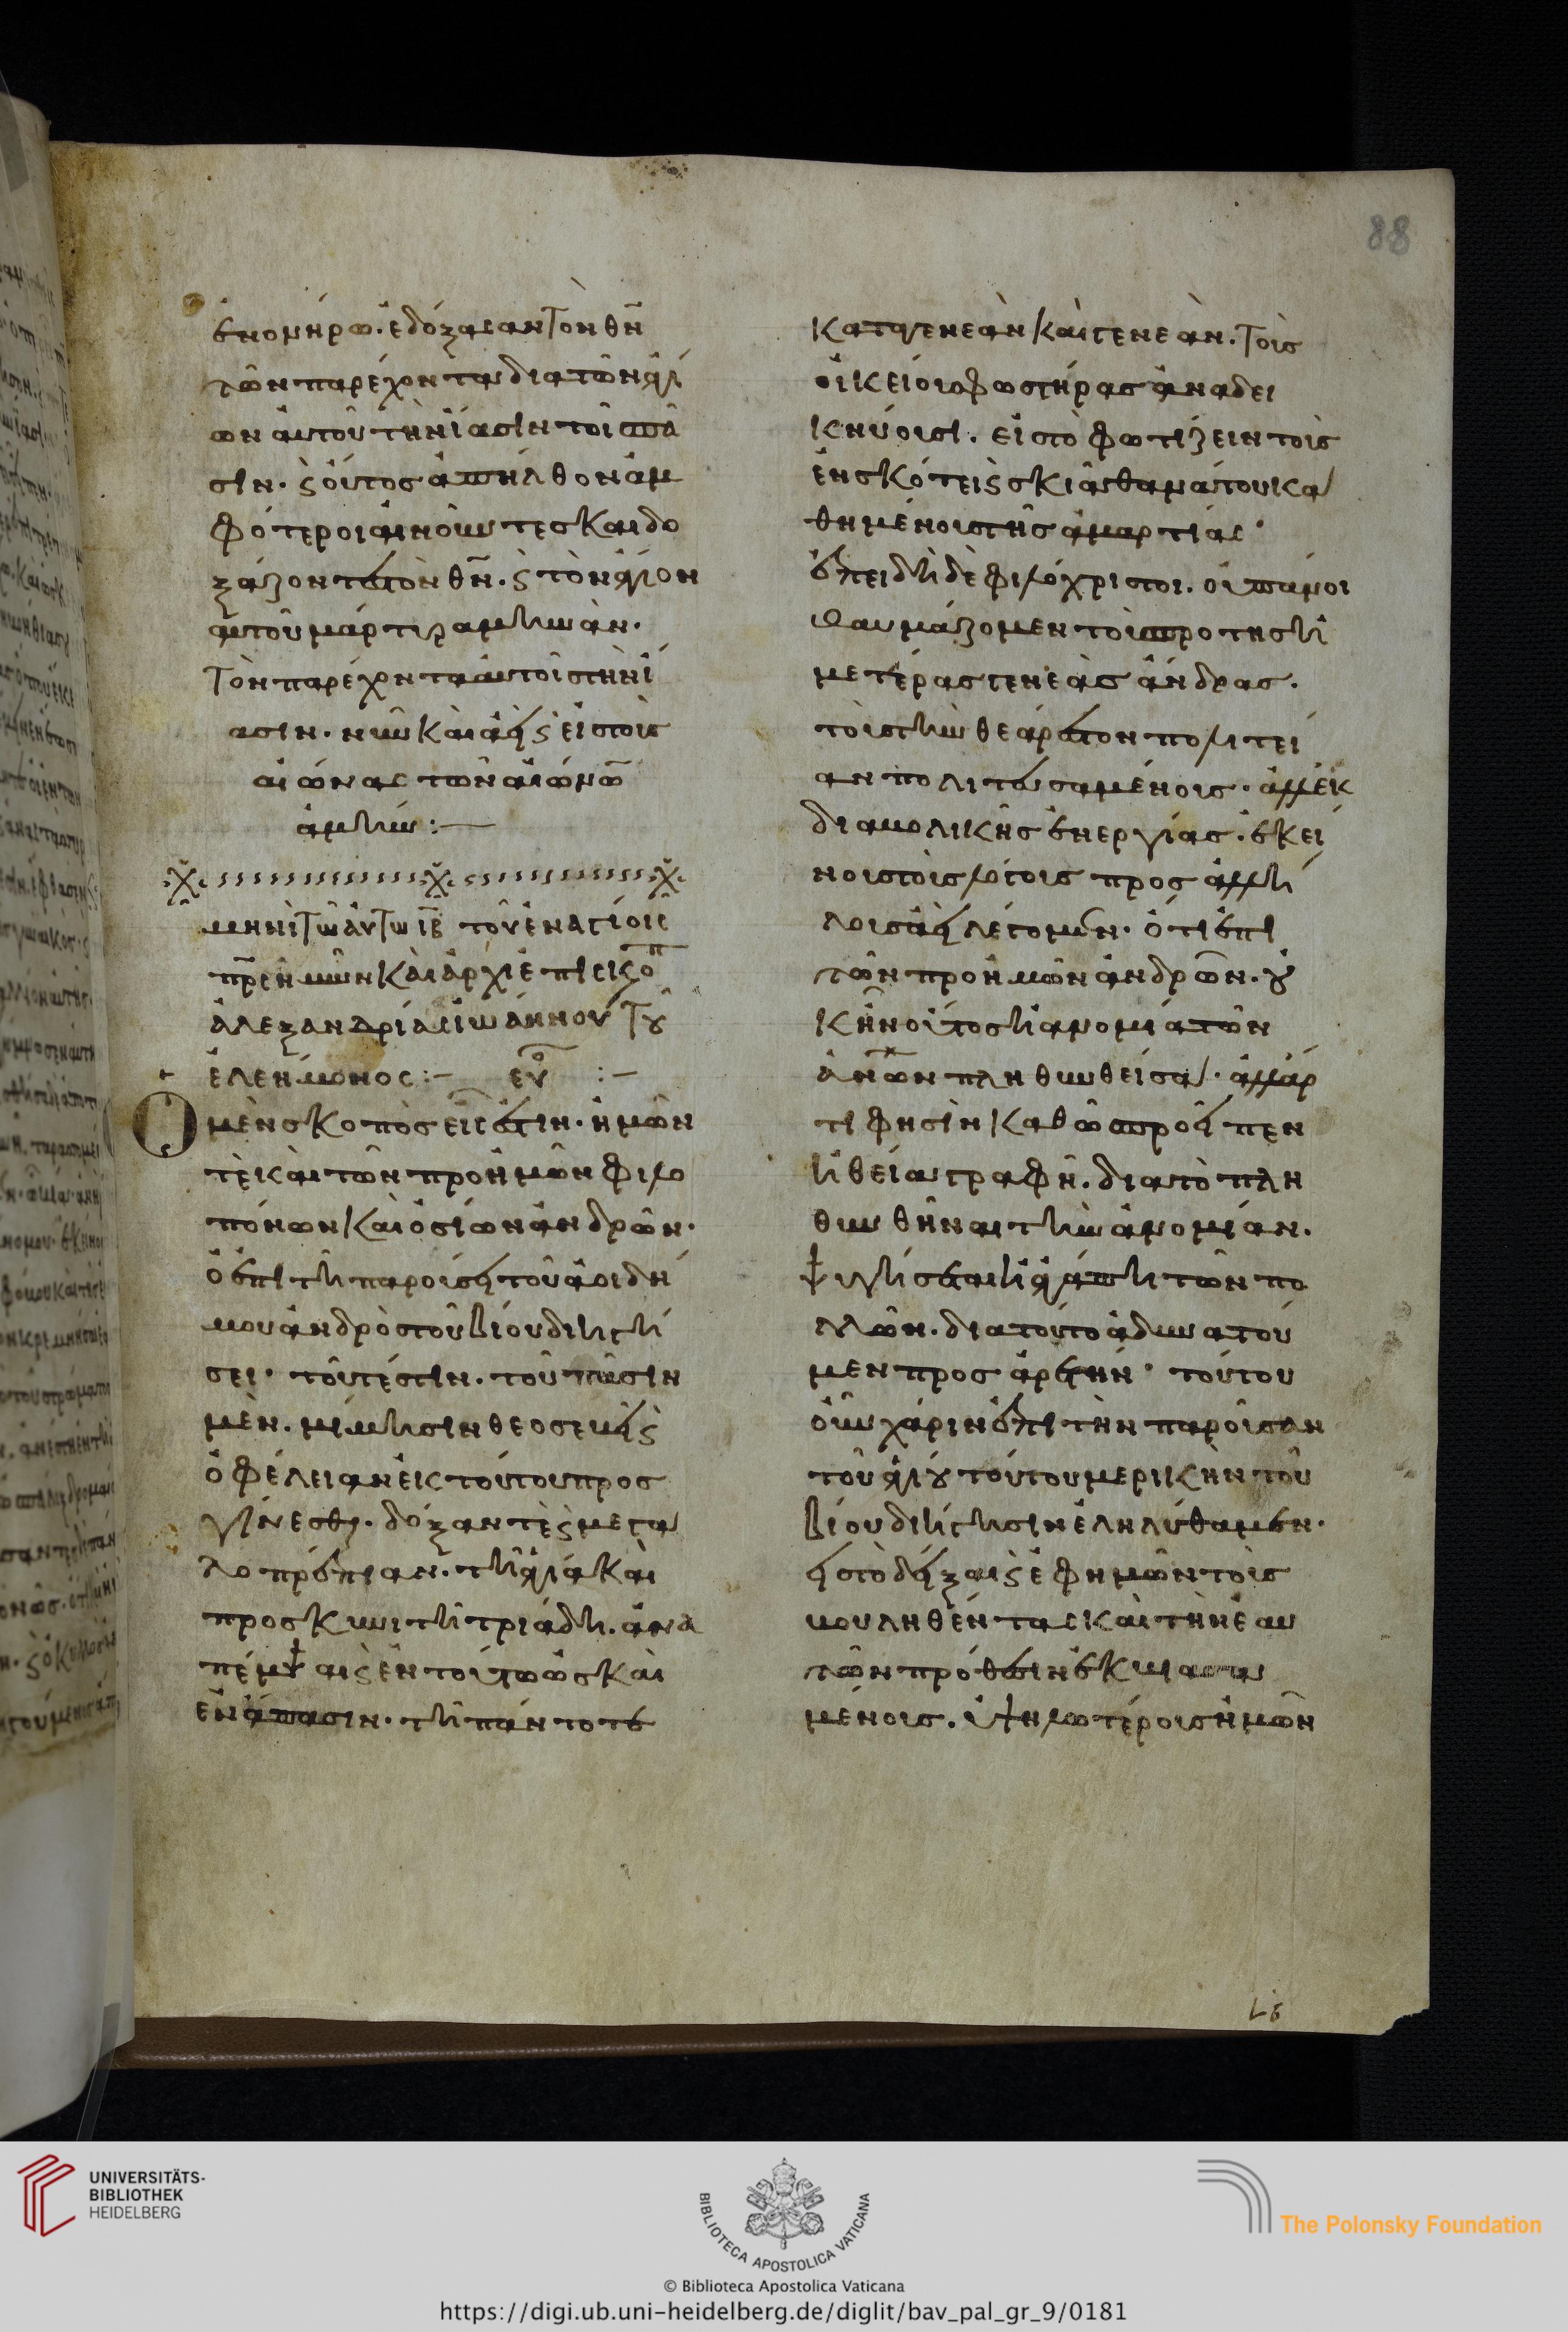 88
ἐνομήρω. ἐδόξασαν τὸν θν̄
τῶν παρέχοντα διατῶν ἁγί
ων αὐτοῦ τὴν ἴασιν τοῖς πᾶ
σιν. ϛ οὕτος ἀπῆλθον ἀμ
φότεροι αἰνοῦντες και δο
ξάζοντες τὸν θν̄. ϛ τὸν ἅγιον
αὐτοῦ μάρτυρα μηνᾶν.
Τὸν παρέχοντα αὐτοῖς τὴν ἴ
ασιν. νῦν καὶ ἀεὶ ϛ εἰς τοὺς
αἰώνας τῶν αἰώνω
ἀμήν :—
μηνὶ τῶ ἀυτῶ ιβ τοῦ ἐν ἁγίοις
πρ̄ς ἡμῶν καὶ ἀρχιεπισκο
ἀλεξανδρίας ἰωάννου τοῦ
ἐλεήμονος :— ευ :—
Ὁ μὲν σκοπὸς εἷς ἐστιν. ἡμῶν
τε καὶ τῶν προ ἡμῶν φιλο
πόνων καὶ ὁσίων ἀνδρῶν.
ὁ ἐπι τη παρούσει τοῦ ἀοιδή
μου ἀνδρὸς τοῦ βίου διηγή
σει. τοῦτέστιν. τοῦ πᾶσιν
μὲν. μίμησιν θεοσεβεῖ ϛ
ὀφέλειαν εἰς τούτου προσ
γίνεσθαι. δόξαν τὲ ϛ μεγα
λοπρέπειαν. τῆ ἁγία καὶ
προσκυνιτῆ τριάδη. ἀνα
πέμψαι ϛ ἐν τούτω ὡς καὶ
ἐν ἅπασιν. τῆ πάντοτε
κατα γενεὰν καὶ γενεὰν. τοὺς
οἰκείους φωστήρας ἀναδει
κνύουσι. εἰς τὸ φωτίζειν τοὺς
ἐν σκότει ϛ σκιᾶ θανάτου κα
θημένους τῆς ἁμαρτίας.
ἐπειδὴ δὲ φιλόχριστοι. οὐ πάνοι
θαυμάζομεν τοὺς προ τῆς ἡ
μετέρας γενεὰς ἄνδρας.
τοῖς τὴν θεάρεστον πολιτεί
αν πολιτευσαμένοις. ἀλλ' ἐκ
διαβολικῆς ἐνεργίας. ἐκεί
νοις τοῖς λόγοις προς ἀλλή
λους ἀεὶ λέγομεν. ὅτι ἐπι
τῶν προ ἡμῶν ἀνδρῶν. οὐ
κ ἦν οὕτος ἡ ἀνομία τῶν
ἀνω̄ν πληθυνθεῖσα. ἀλλ' ἄρ
τι φησὶν καθὼς προεῖπεν
ἡ θεία γραφῆ. δια τὸ πλη
θυνθῆναι τὴν ἀνομίαν.
ψυγήσεται ἡ ἀγάπη τῶν πο
λλῶν. δια τοῦτο ἀδυνατοῦ
μεν προς ἀρετὴν. τούτου
οὖν χάριν ἐπι τὴν παροῦσαν
τοῦ ἁγίου τούτου μερικὴν τοῦ
βίου διήγησιν ἐληλύθαμεν.
εἰς τὸ δεῖξαι ϛ ἐφ ημῶν τοὺς
βουληθέντας καὶ τὴν ἑαυ
τῶν πρόθεσιν ἐκβιασα
μένοις. ὑψηλωτέρους ἡμῶν
UNIVERSITÄTS-
BIBLIOTHEK
HEIDELBERG
BIBLIOTECA APOSTOLICA VATICANA
The Polonsky Foundation
© Biblioteca Apostolica Vaticana
https://digi.ub.uni-heidelberg.de/diglit/bav_pal_gr_9/0181